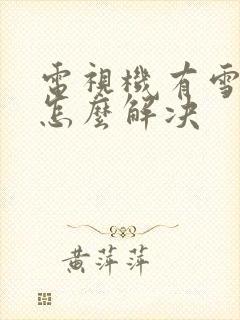 電視機有雪
怎麼解決
黃萍萍